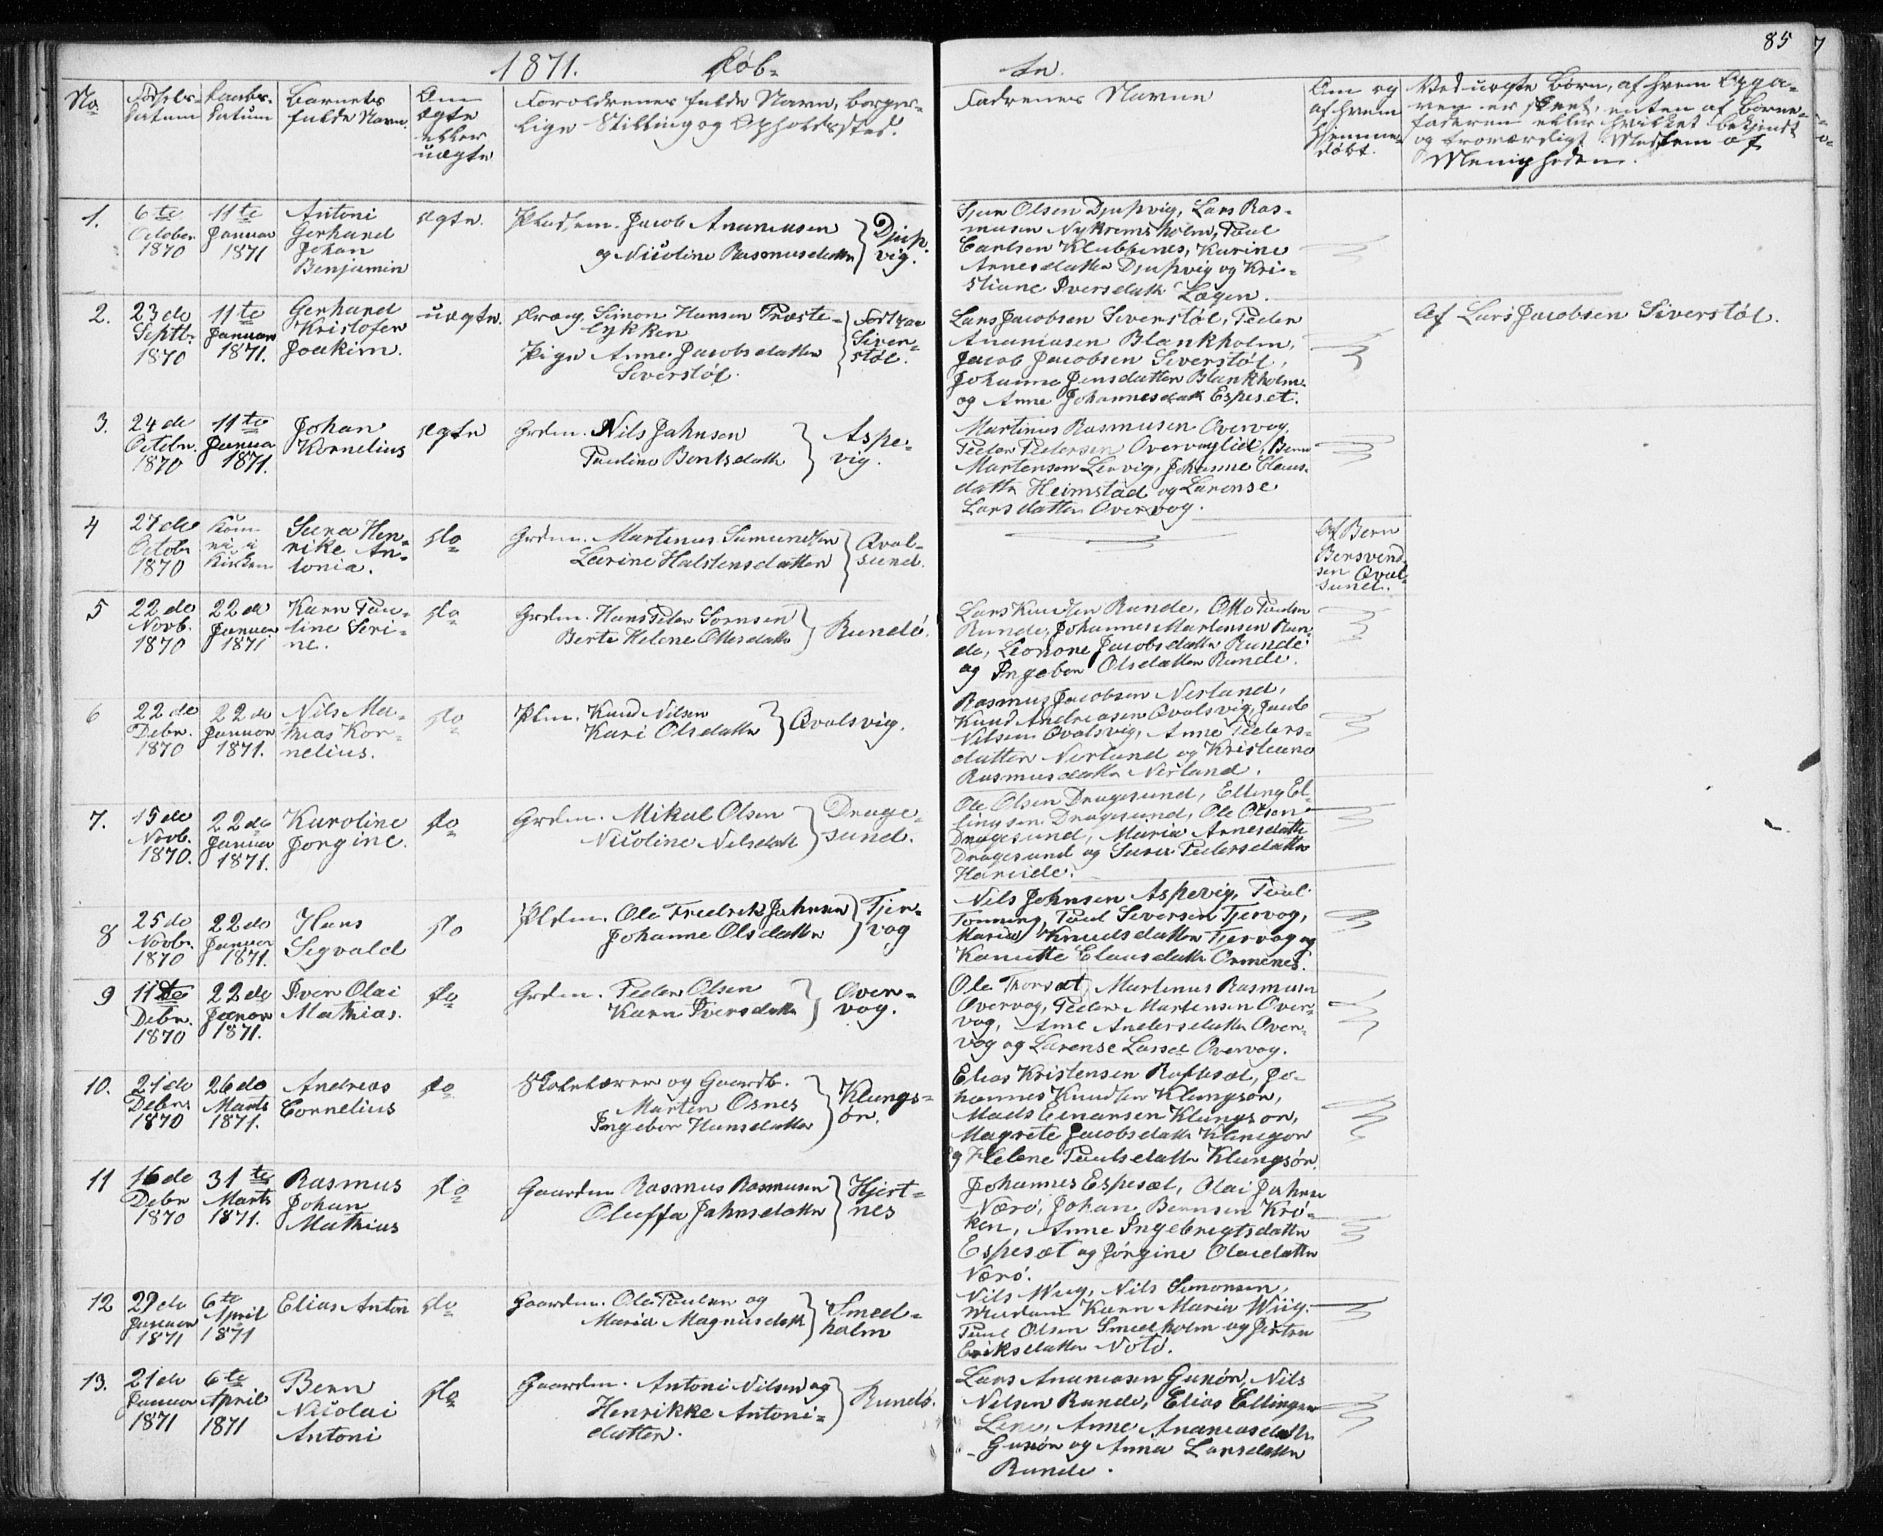 1871. Døb- te. 85
No Fødsels- Datum Daabs- Datum Barnets fulde Navn. Om ægte eller uægte Forældrenes fulde Navn, borger- lige Stilling og Opholdssted. Faddrenes Navne Om og af hvem hjemme- døbt. Ved uægte Børn, af hvem Opga- ven er skeet, enten af Barne- faderen eller hvilket bekjendt og troværdigt Medlem af Menigheden.
1. 6te October 1870 11te Januar 1871 Antoni Gerhard Johan Benjamin ægte. Pladsem. Jacob Ananiasen og Nicoline Rasmusdatter Djup- vig.
Sjur Olsen Djupvig, Lars Ras-
musen Nykremsholm, Paul
Carlsen Klubbenes, Karine
Arnesdatter Djupvig og Kri-
stiane Iversdatt Lægen.
2. 23de Septb. 1870 11te Januar 1871. Gerhard Kristofer Joakim. uægte. Dræng Simon Hansen Præste- lykken Pige Anne Jacobsdatter Siverstøl. Siver- støl.
Lars Jacobsen Siverstøl, Peder
Ananiasen Blankholm,
Jacob Jacobsen Siverstøl,
Johanne Jensdatter Blankholm
og Anne Johannesdatt Espeset.
Af Lars Jacobsen Siverstøl.
3. 24de Octobr. 1870 11te Januar 1871. Johan Kornelius ægte Grdm. Nils Jahnsen Pauline Bentsdatter Aspe- vig.
Martinus Rasmusen Overvog,
Peder Pedersen Overvoglid, Bern
Martensen Leivig, Johanne Claus-
datter Heimstad og Larense
Larsdatter Overvog.
4 27de Octobr 1870 Kirken Sera Hen- rike An- tonia. do Grdm. Martinus Samundsen Larine Halstensdatter Qval- sund.
Af Bern Bersvend- sen Qval- sund.
5 22de Novb. 1870 22de Januar 1871 Karn Pau- line Seri- ne. do Grdm. Hans Peter Sørnsen Berte Helene Ottesdatter Rundø.
Lars Knudsen Runde, Otto Paulsen
Runde, Johannes Martensen Run-
de, Leonore Jacobsdatter Runde
og Ingebor Olsdatter Runde.
6 22de Debr. 1870 22de Januar 1871. Nils Ma- thias Kor- nelius. do Plm. Knud Nilsen Kari Olsdatter Qvalsvig.
Rasmus Jacobsen Nerland,
Knud Andreasen Qvalsvig, Jacob
Nilsen Qvalsvig, Anne Peders-
datter Nerland og Kristiane
Rasmusdatter Nerland.
7. 15de Novb. 1870. 22de Januar 1871. Karoline Jorgine. do Grdm. Mikal Olsen Nicoline Nilsdatt Drage- sund.
Ole Olsen Dragesund, Elling El-
lingsen Dragesund, Ole Olsen
Dragesund, Maria Arnesdatter
Dragesund og Sera Pedersdatter
Hareide.
8 25de Novbr. 1870 22de Januar 1871. Hans Sigvald do Pldm. Ole Fredrek Jahnsen Johanne Olsdatter Tjer- vog
Nils Johnsen Aspevig, Paul
Tonning, Paul Seversen Tjervog,
Maria Knudsdatter Tjervog og
Kanutte Clausdatter Ormenes.
9 11te Debr. 1870 22de Januar 1871. Iver Olai Mathias. do Grdm. Peder Olsen Karn Iversdatter Over- vog.
Ole Thorsæt, Martinus Rasmusen
Overvog, Peder Martensen Over-
vog, Ane Andersdatter Over-
vog og Larense Larsd. Overvog.
10. 21de Debr. 1870 26de Marts 1871. Andreas Cornelius do Skolelærer og Gaardb. Marten Osnes Ingebor Hansdatter Klungs- ør.
Elias Kristensen Roppesæt, Jo-
hannes Knudsen Klungsør,
Mads Einansen Klungsør,
Magrete Jacobsdatter Klungsør
og Helene Paulsdatter Klungsør.
11 16de Debr 1870 31te Marts 1871. Rasmus Johan Mathias do Gaardm Rasmus Rasmusen Oluffa Jahnsdatter Hjert- nes
Johannes Espesæt, Olai Jahnsen
Nærø, Johan Bernsen Krø-
ken, Anne Ingebrigtsdatter
Espesæt og Jørgine Olaidatter
Nærø.
12 29de Januar 1871 6te April 1871 Elias Anton do Gaardm. Ole Paulsen og Maria Magnusdatt Smed- holm
Nils Wiig, Nils Simonsen,
Madam Karn Maria Wiig,
Paul Olsen Smedholm og
Eriksdatter Notø.
13. 21de Januar 1871 6te April 1871 Bern Nicolai Antoni do Gaardm. Antoni Nilsen og Henrikke Antoni- datter. Rundø.
Lars Ananiasen Gurøn, Nils
Nilsen Runde, Elias Ellingsen
Anne Ananiasdatter
Gurøn og Anna Larsdatter
Runde.